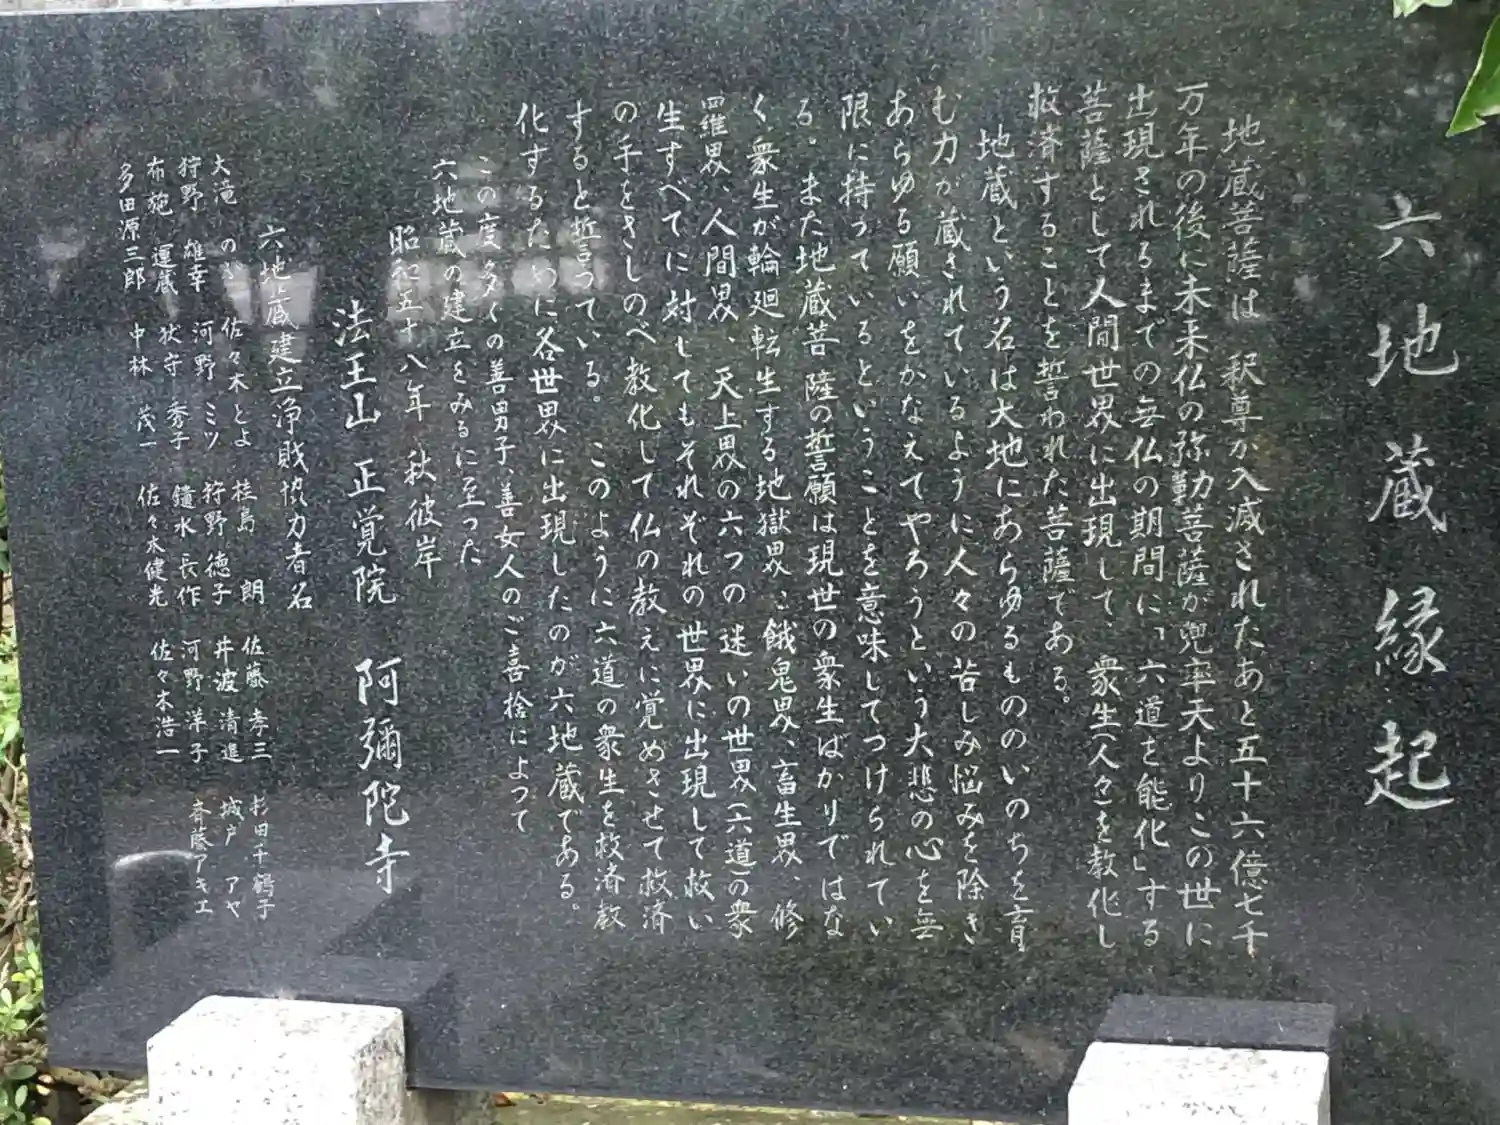 六地蔵縁起
地蔵菩薩は 釈尊が入滅されたあと五十六億七千
万年の後に未来仏の弥勒菩薩が兜率天よりこの世に
出現されるまでの無仏の期間に「六道を能化」する
菩薩として人間世界に出現して、衆生(人々)を教化し
救済することを誓われた菩薩である。
地蔵という名は大地にあらゆるもののいのちを育
む力が蔵されているように人々の苦しみ悩みを除き
あらゆる願いをかなえてやろうという大悲の心を無
限に持っているということを意味してつけられてい
る。また地蔵菩薩の誓願は現世の衆生ばかりではな
く衆生が輪廻転生する地獄界、餓鬼界、畜生界、修
羅界、人間界、天上界の六つの迷いの世界(六道)の衆
生すべてに対してもそれぞれの世界に出現して救い
の手をさしのべ教化して仏の教えに覚めさせて救済
すると誓っている。このように六道の衆生を救済教
化するために各世界に出現したのが六地蔵である。
この度多くの善男子、善女人のご喜捨によって
六地蔵の建立をみるに至った
昭和五十八年 秋彼岸
法王山 正覚院 阿彌陀寺
六地蔵建立浄財協力者名
大滝 の 佐々木とよ 桂島 朗 佐藤孝三 杉田千鶴子
狩野雄幸 河野ミツ 狩野徳子 井波清進 城戸アヤ
布施運蔵 狄守秀子 鑓水長作 河野洋子 斉藤アキエ
多田源三郎 中林茂一 佐々木健光 佐々木浩一